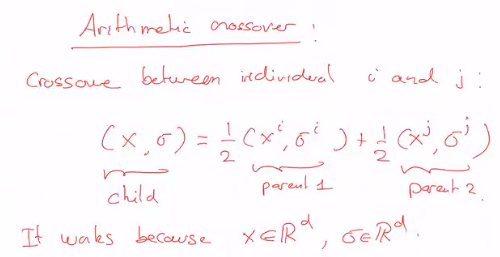 Arithmetic crossover :
Crossove between individual i and j :
(x, σ) = 1/2 (xⁱ, σⁱ) + 1/2 (xʲ, σʲ)
child parent 1 parent 2.
It works because x ∈ ℝᵈ, σ ∈ ℝᵈ.